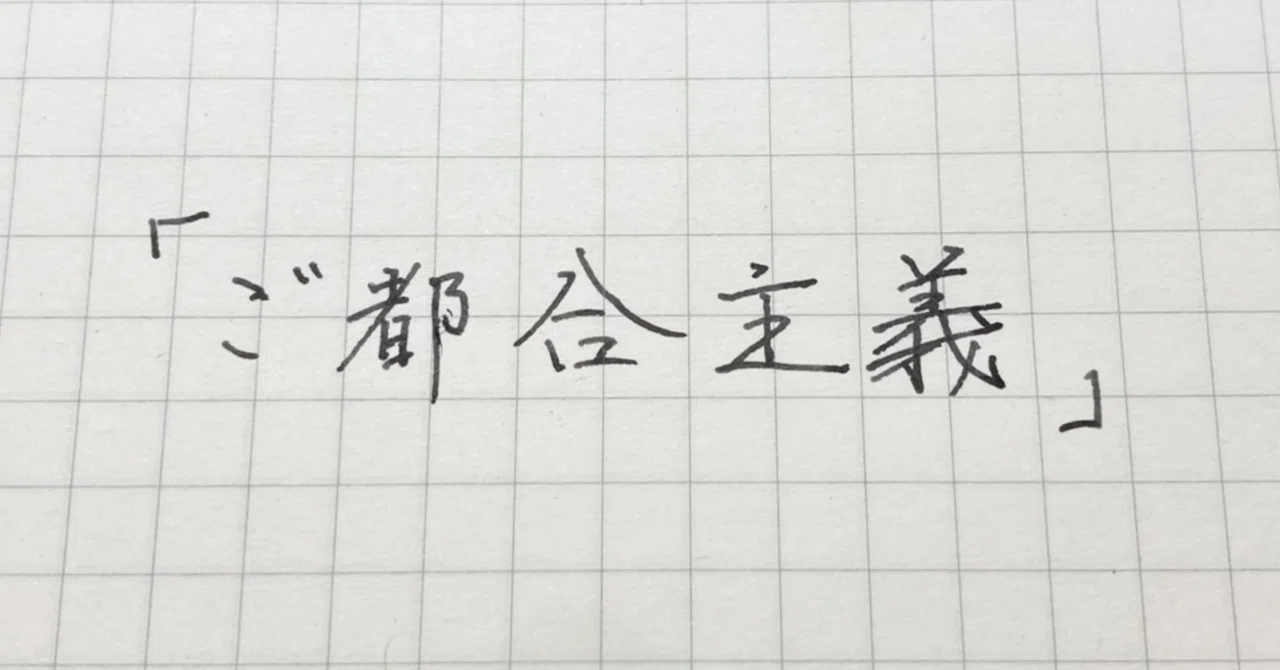 「ご都合主義」